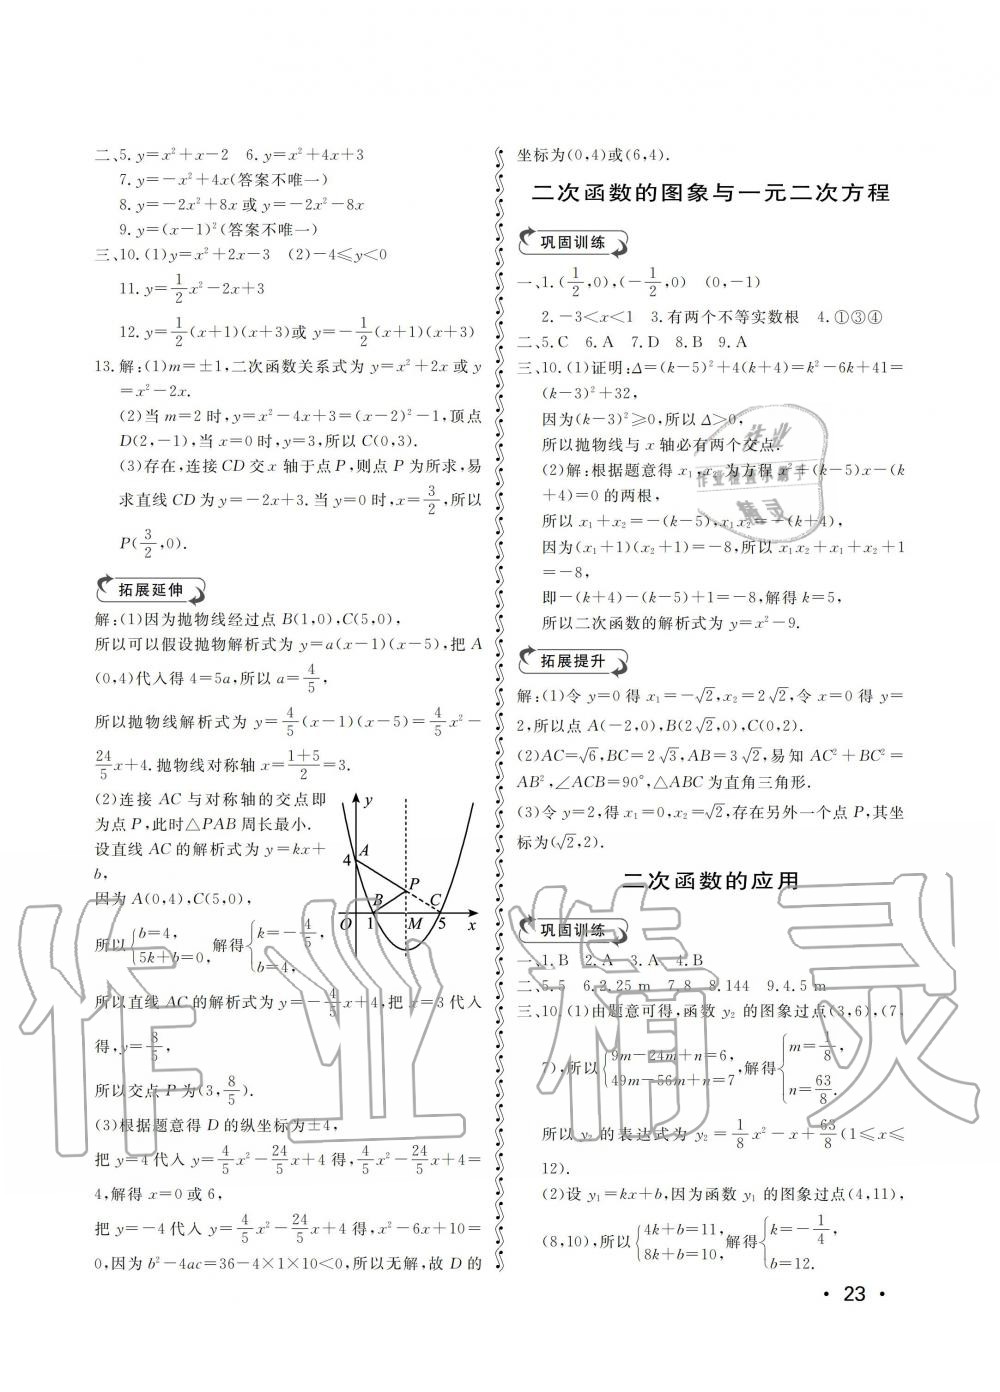 二、5. y=x²+x-2　6. y=x²+4x+3
7. y=-x²+4x(答案不唯一)
8. y=-2x²+8x 或 y=-2x²-8x
9. y=(x-1)²(答案不唯一)
三、10. (1)y=x²+2x-3　(2)-4≤y<0
11. y=1/2x²-2x+3
12. y=1/2(x+1)(x+3)或 y=-1/2(x+1)(x+3)
13. 解:(1)m=±1,二次函数关系式为 y=x²+2x 或 y
=x²-2x.
(2)当 m=2 时,y=x²-4x+3=(x-2)²-1,顶点
D(2,-1),当 x=0 时,y=3,所以 C(0,3).
(3)存在,连接 CD 交 x 轴于点 P,则点 P 为所求,易
求直线 CD 为 y=-2x+3. 当 y=0 时,x=3/2,所以
P(3/2,0).
拓展延伸
解:(1)因为抛物线经过点 B(1,0),C(5,0),
所以可以假设抛物解析式为 y=a(x-1)(x-5),把 A
(0,4)代入得 4=5a,所以 a=4/5,
所以抛物线解析式为 y=4/5(x-1)(x-5)=4/5x²-
24/5x+4. 抛物线对称轴 x=(1+5)/2=3.
(2)连接 AC 与对称轴的交点即
为点 P,此时△PAB 周长最小.
设直线 AC 的解析式为 y=kx+
b,
因为 A(0,4),C(5,0),
所以{b=4, 5k+b=0, 解得{k=-4/5, b=4,
y
4 A
P
B C
O 1 M 5 x
所以直线 AC 的解析式为 y=-4/5x+4,把 x=3 代入
得,y=8/5,
所以交点 P 为(3,8/5).
(3)根据题意得 D 的纵坐标为±4,
把 y=4 代入 y=4/5x²-24/5x+4 得,4/5x²-24/5x+4=
4,解得 x=0 或 6,
把 y=-4 代入 y=4/5x²-24/5x+4 得,x²-6x+10=
0,因为 b²-4ac=36-4×1×10<0,所以无解,故 D 的
坐标为(0,4)或(6,4).
二次函数的图象与一元二次方程
巩固训练
一、1. (1/2,0),(-1/2,0)　(0,-1)
2. -3<x<1　3. 有两个不等实数根　4. ①③④
二、5. C　6. A　7. D　8. B　9. A
三、10. (1)证明:Δ=(k-5)²+4(k+4)=k²-6k+41=
(k-3)²+32,
因为(k-3)²≥0,所以 Δ>0,
所以抛物线与 x 轴必有两个交点.
(2)解:根据题意得 x₁,x₂ 为方程 x²+(k-5)x-(k
+4)=0 的两根,
所以 x₁+x₂=-(k-5),x₁x₂=-(k+4),
因为(x₁+1)(x₂+1)=-8,所以 x₁x₂+x₁+x₂+1
=-8,
即-(k+4)-(k-5)+1=-8,解得 k=5,
所以二次函数的解析式为 y=x²-9.
拓展提升
解:(1)令 y=0 得 x₁=-√2,x₂=2√2,令 x=0 得 y=
2,所以点 A(-2,0),B(2√2,0),C(0,2).
(2)AC=√6,BC=2√3,AB=3√2,易知 AC²+BC²=
AB²,∠ACB=90°,△ABC 为直角三角形.
(3)令 y=2,得 x₁=0,x₂=√2,存在另外一个点 P,其坐
标为(√2,2).
二次函数的应用
巩固训练
一、1. B　2. A　3. A　4. B
二、5. 5　6. 3.25 m　7. 8　8. 144　9. 4.5 m
三、10. (1)由题意可得,函数 y₂ 的图象过点(3,6),(7,
7),所以{9m-24m+n=6, 49m-56m+n=7, 解得{m=1/8, n=63/8.
所以 y₂ 的表达式为 y₂=1/8x²-x+63/8(1≤x≤
12).
(2)设 y₁=kx+b,因为函数 y₁ 的图象过点(4,11),
(8,10),所以{4k+b=11, 8k+b=10, 解得{k=-1/4, b=12.
• 23 •
作业精灵
作业
精灵